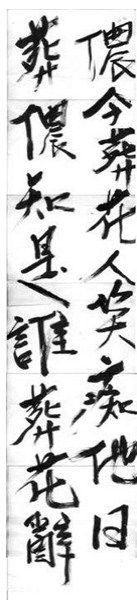 儂今葬花人笑癡他日
葬儂知是誰葬花辭